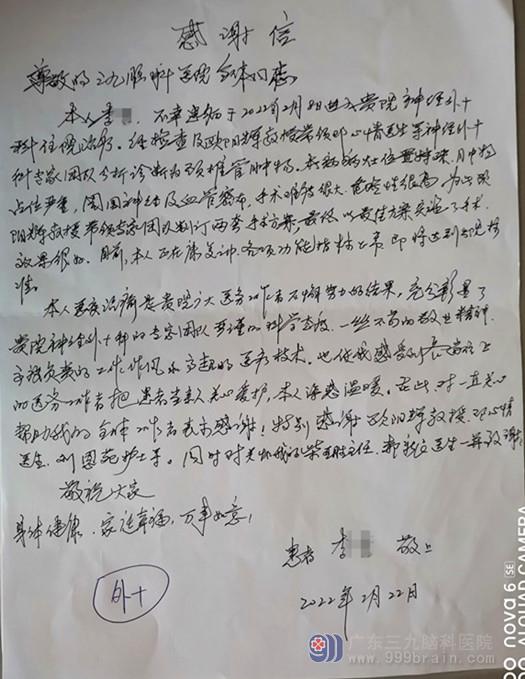 感谢信
尊敬的三九脑科医院全体同志
本人李 不幸患病于2022年2月8日进入贵院神经外十
科住院治疗。经检查及欧阳辉教授带领邓心情医生等神经外十
科专家团队分析诊断为颈椎管肿物。我的病灶位置特殊，肿物
占位严重，周围神经及血管密布，手术难度很大，危险性很高，为此欧
阳辉教授带领专家团队制订两套手术方案，最终以最佳方案实施了手术，
效果很好。目前，本人正在康复中，各项功能指标上升，即将达到出院标
准。
本人医疗治病是贵院广大医务工作者不懈努力的结果，充分彰显了
贵院神经外十科的专家团队严谨的科学态度，一丝不苟的敬业精神，
主动负责的工作作风和高超的医疗技术。也使我感受到
的医务工作者把患者当亲人关心爱护，本人深感温暖。在此，对一直关心
帮助我的全体工作者表示感谢！特别感谢欧阳辉教授，邓心情
医生，刘 护士等。同时对关怀我的 主任、 医生一并致谢
敬祝大家
身体健康、家庭幸福，万事如意！
患者 李 敬上
2022年2月22日
外十
广东三九脑科医院
www.999brain.com
nova 6 SE
AQUAD CAMERA